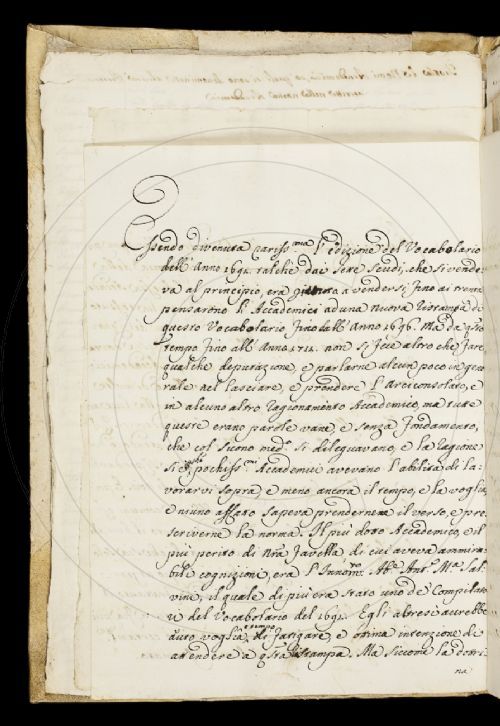 Essendo divenuta rariss.ma l'edizione del Vocabolario
dell'Anno 1691. talchè dai sette Scudi, che si vende-
va al principio, era giunta a vendersi fino ai trenta
pensarono li Accademici ad una nuova Ristampa di
questo Vocabolario fino dall'Anno 1696. Ma da qto
tempo fino all'Anno 1711. non si fece altro che fare
qualche deputazione, e parlarne alcun poco in gene-
rale nel lasciare, e prendere l'Arciconsolato, e
in alcuno altro ragionamento Accademico, ma tutte
queste erano parole vane, e senza fondamento,
che col suono med.o si dileguavano, e la ragione
si è, perchè pochiss.mi Accademici avevano l'abilità di la-
vorarvi sopra, e meno ancora il tempo, e la voglia
e niuno affatto sapeva prenderne il verso, e pre-
scriverne la norma. Il più dotto Accademico, e il
più perito di nra favella di cui aveva ammira-
bile cognizione, era l' Ab.e Ant.o M.a Sal-
vini, il quale di più era stato uno de' Compilato-
ri del Vocabolario del 1691. Egli altresì avrebbe
auto voglia, tempo di fatigare, e ottima intenzione di
attendere a qsta ristampa. Ma siccome la dottri-
na